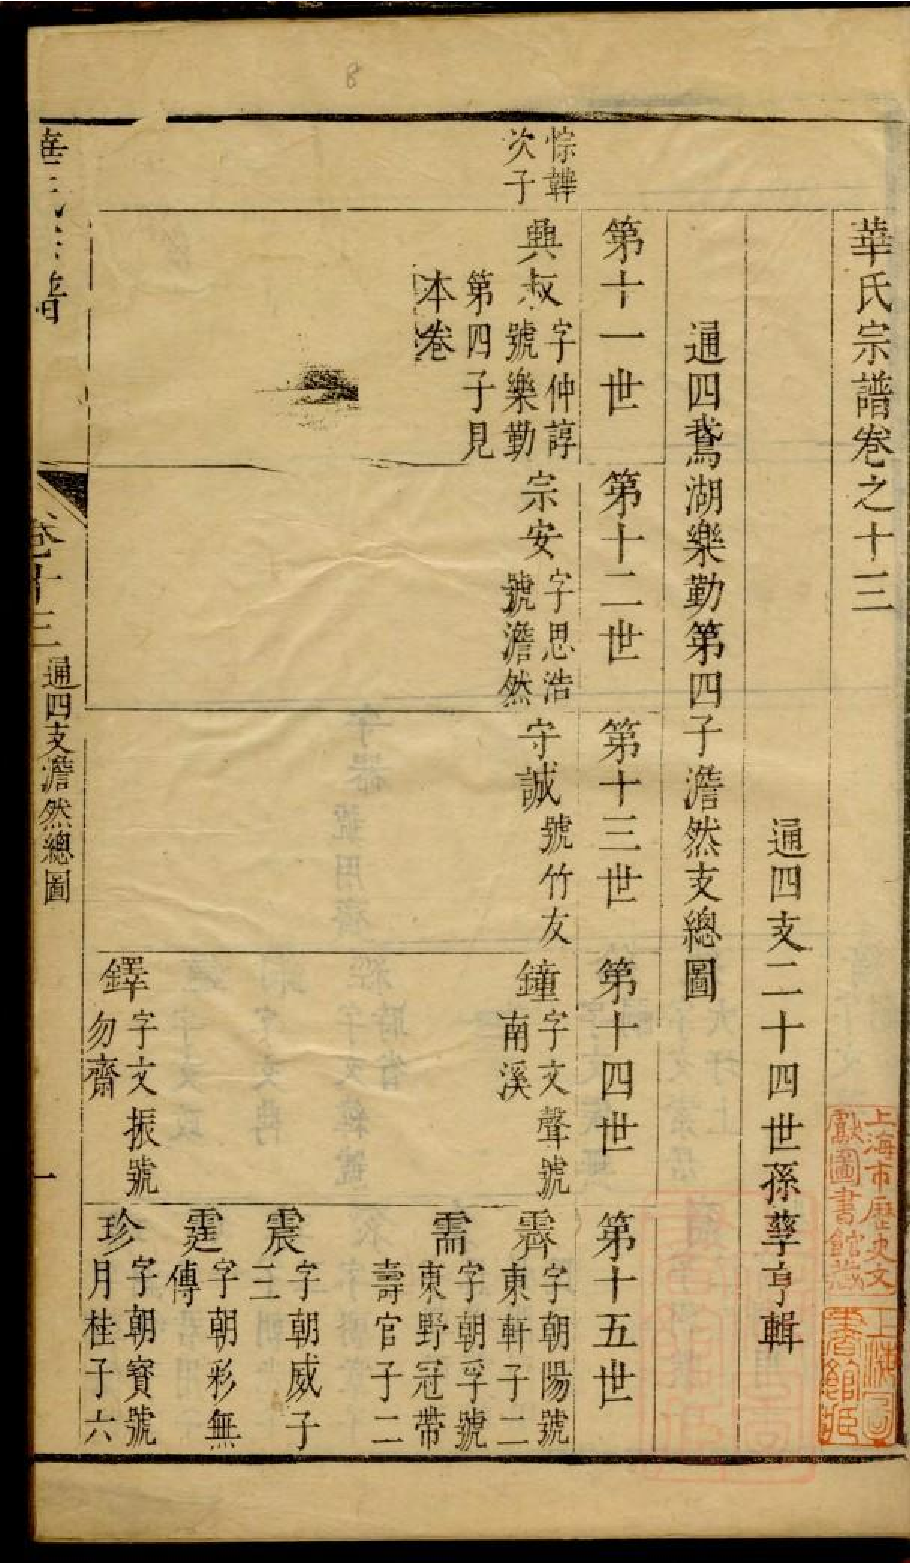 華氏宗譜卷之十三
通四支二十四世孫孳亨輯
通四鵞湖樂勤第四子澹然支總圖
第十一世
第十二世
第十三世
第十四世
第十五世
悰韡
次子
興叔
字仲諄
號樂勤
第四子見
本卷
宗安
字思浩
號澹然
守誠
號竹友
鐘
字文聲號
南溪
霽
字朝陽號
東軒子二
需
字朝孚號
東野冠帶
壽官子二
震
字朝威子
三
霆
字朝彩無
傳
鐸
字文振號
勿齋
珍
字朝寶號
月桂子六
華氏宗譜
卷十三
通四支澹然總圖
一
上海市歷史文
獻圖書館藏
8